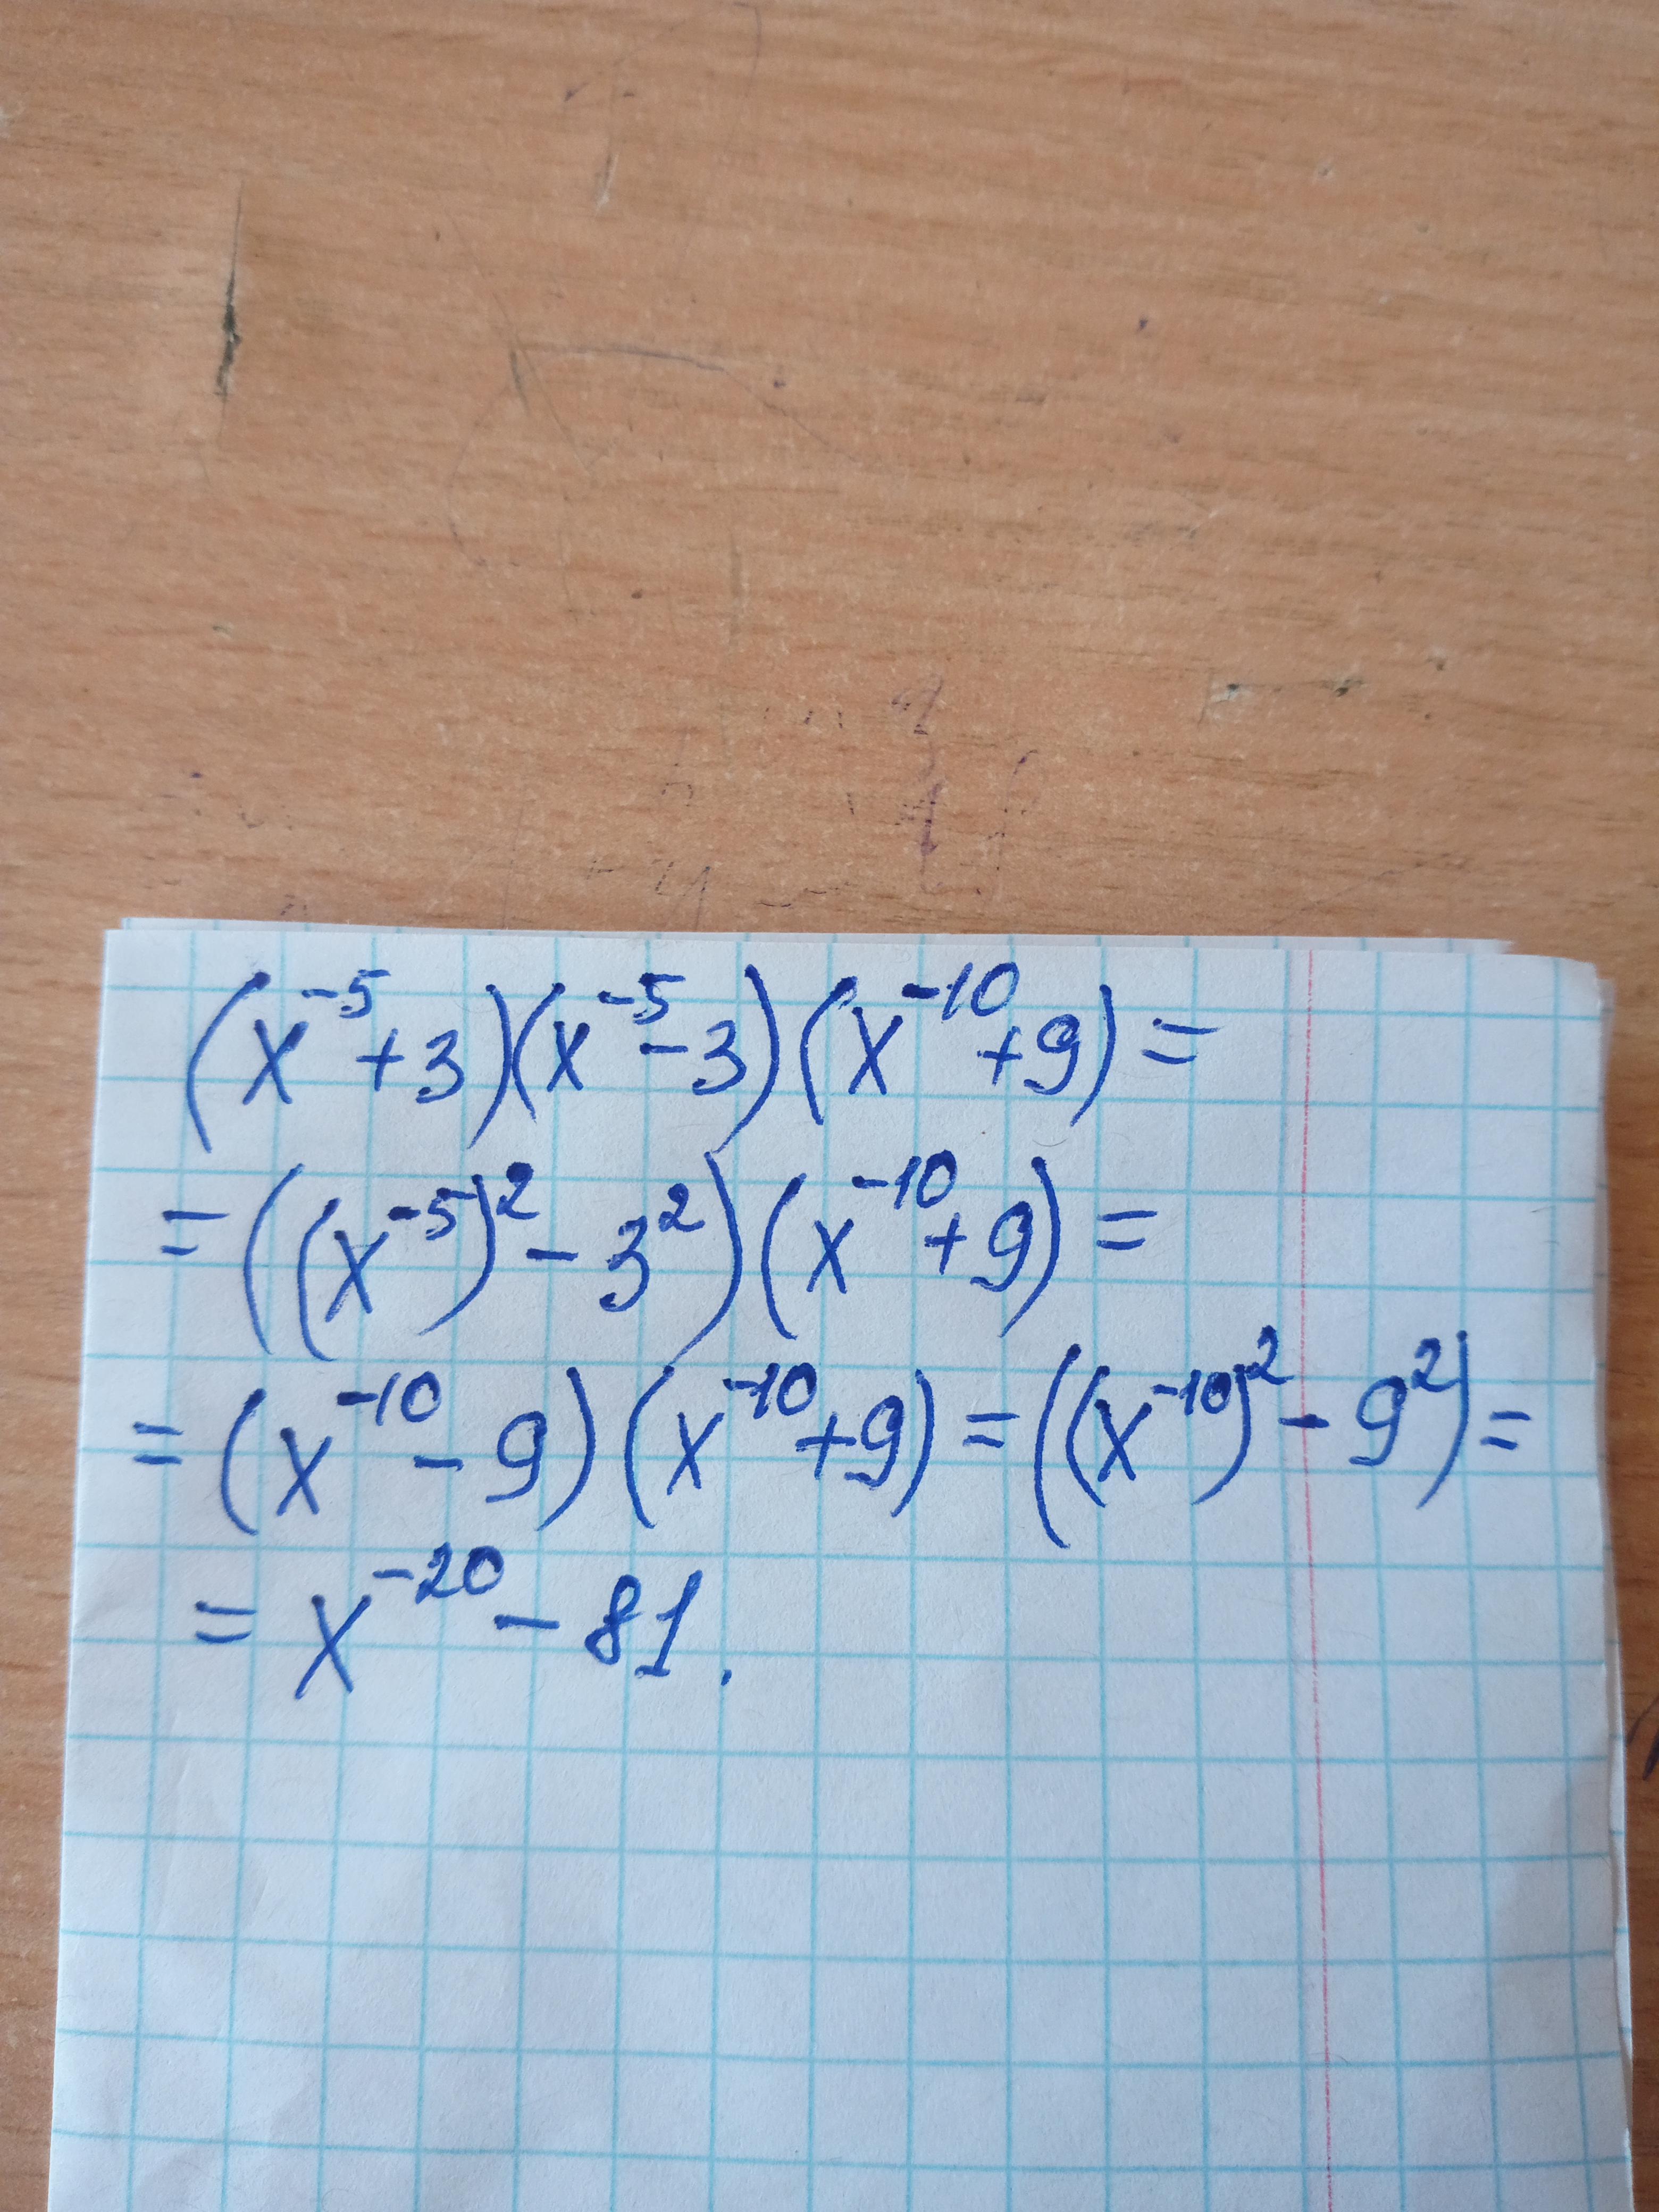 (x⁻⁵+3)(x⁻⁵-3)(x⁻¹⁰+9)=
=((x⁻⁵)²-3²)(x⁻¹⁰+9)=
=(x⁻¹⁰-9)(x⁻¹⁰+9)=((x⁻¹⁰)²-9²)=
=x⁻²⁰-81.